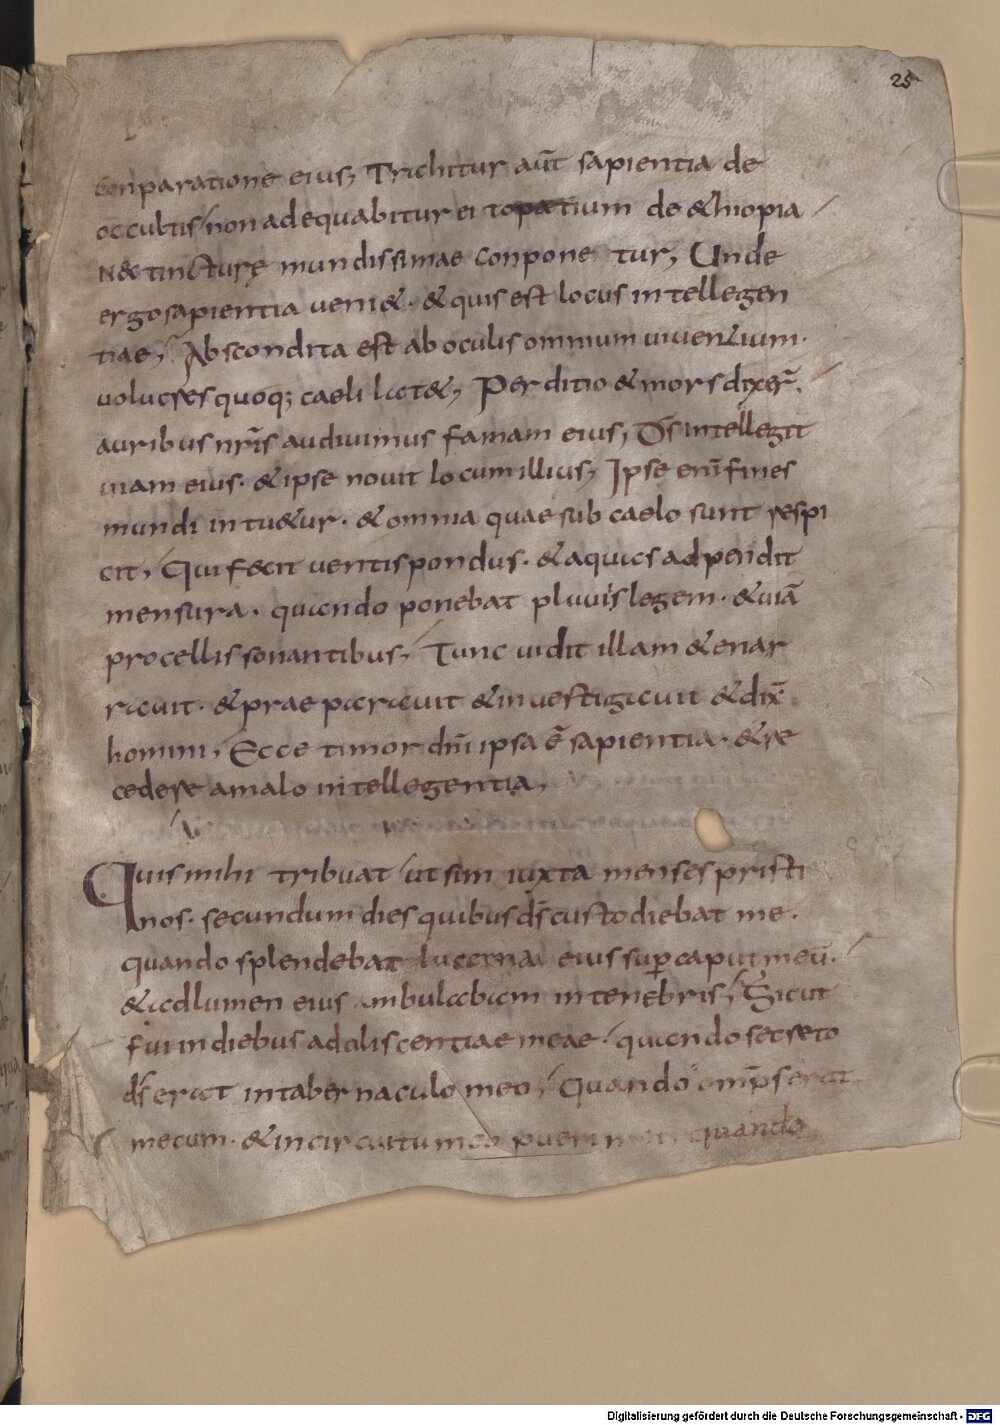 25
conparatione eius, Trahitur aut̄ sapientia de
occultis non adequabitur ei topatium de &hiopia
N&c tincturę mundissimae conpone tur, Unde
ergo sapientia veni&. & quis est locus intellegen
tiae, Abscondita est ab oculis omnium uiuentium.
uolucres quoq; caeli lat&, Perditio & mors dixer̄.
auribus nr̄is audiuimus famam eius, Ds̄ intellegit
uiam eius. & ipse nouit locum illius, Ipse enī fines
mundi intu&ur. & omnia quae sub caelo sunt respi
cit, Qui fecit uentis pondus. & aquas adpendit
mensura. quando ponebat pluuiis legem. & uiā
procellis sonantibus, Tunc uidit illam & enar
rauit. & praeparauit & inuestigauit & dix̄
homini, Ecce timor dn̄i ipsa ē sapientia. & re
cedere a malo intellegentia,
Quis mihi tribuat ut sim iuxta menses pristi
nos. secundum dies quibus ds̄ custodiebat me.
quando splendebat lucerna eius sup caput meū.
& ad lumen eius ambulabam in tenebris, Sicut
fui in diebus adoliscentiae meae. quando secreto
ds̄ erat in tabernaculo meo, Quando omps̄ erat
mecum. & in circuitu meo pueri mei, quando
Digitalisierung gefördert durch die Deutsche Forschungsgemeinschaft - DFG